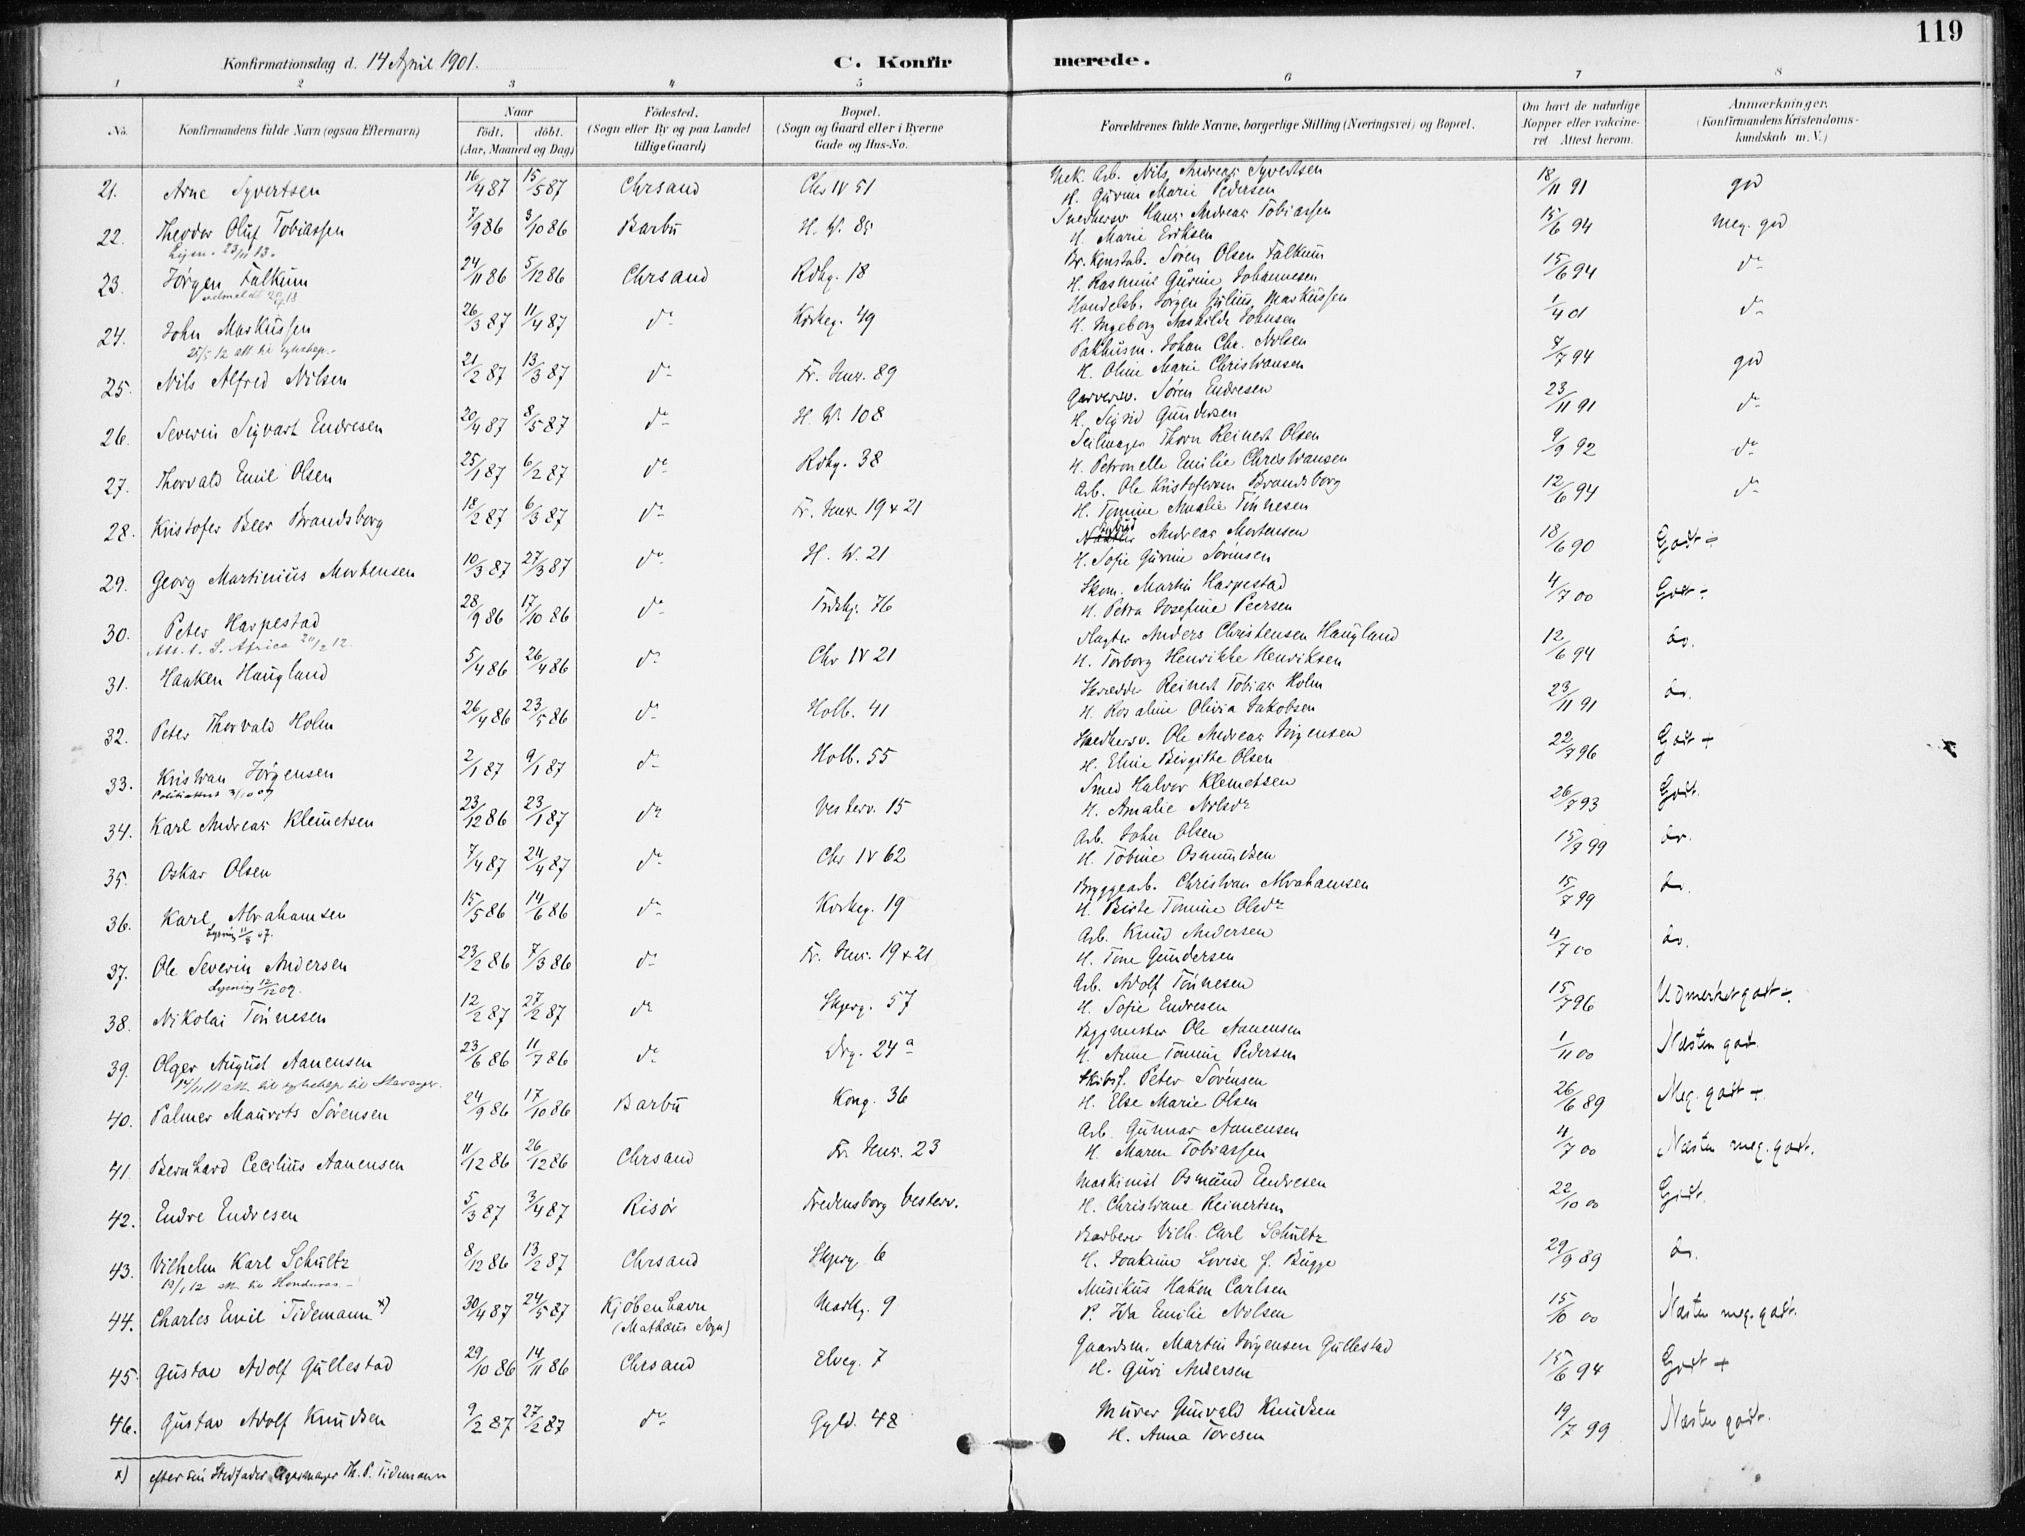 119
Konfirmationsdag d. 14 April 1901.
C. Konfir merede.
1 2 3 4 5 6 7 8
No. Konfirmandens fulde Navn (ogsaa Efternavn) Naar födt. döbt. (Aar, Maaned og Dag) Födested. (Sogn eller By og paa Landet tillige Gaard) Bopæl. (Sogn og Gaard eller i Byerne Gade og Hus-No. Forældrenes fulde Navne, borgerlige Stilling (Næringsvei) og Bopæl. Om havt de naturlige Kopper eller vakcineret Attest herom. Anmærkninger. (Konfirmandens Kristendomskundskab m. V.)
21. Arne Syvertsen 16/4 87 15/5 87 Chrsand Chr IV 51 Mek. Arb. Nils Andreas Syvertsen 18/11 91 god
H. Gurine Marie Pedersen
22. Theodor Oluf Tobiassen 7/9 86 3/10 86 Barbu H. W. 85 Snedkersv. Hans Andreas Tobiassen 15/6 94 meg. god
Lysn. 23/11 13. H. Marie Eriksen
23. Jörgen Falkum 24/11 86 5/12 86 Chrsand Rdhg. 18 Br. Konstab. Sören Olsen Falkum 15/6 94 do
H. Rasmine Gurine Johannesen
24. John Markussen 26/3 87 11/4 87 do Kirkeg. 49 Handelsb. Jörgen Julius Markussen 1/4 01 do
H. Ingeborg Mathilde Johnsen
25. Nils Alfred Nilsen 21/2 87 13/3 87 do Fr. Henr. 89 Pakhusm. Johan Chr. Nilsen 7/7 94 god
H. Oline Marie Christiansen
26. Severin Sigvart Endresen 20/4 87 8/5 87 do H. W. 108 Garversv. Sören Endresen 23/11 91 do
H. Sigrid Gundersen
27. Thorvald Emil Olsen 25/1 87 6/2 87 do Rdhg. 38 Seilmager Thorn Reinert Olsen 9/9 92 do
H. Petronelle Emilie Christiansen
28. Kristofer Peer Brandsborg 18/2 87 6/3 87 do Fr. Henr. 19 + 21 Arb. Ole Kristofersen Brandsborg 12/6 94 do
H. Tomine Amalie Tönnesen
29. Georg Martinius Mortensen 10/3 87 27/3 87 do H. W. 21 Andreas Mortensen 18/6 90 Godt ÷
H. Sofie Gurine Sörensen
30. Peter Harpestad 28/9 86 17/10 86 do Trdskj. 76 Skom. Martin Harpestad 4/7 00 Godt ÷
Att. t. S. Africa 20/2 12. H. Petra Josefine Peersen
31. Haaken Haugland 5/4 86 26/4 86 do Chr IV 21 Slagter Anders Christensen Haugland 12/6 94 do.
H. Torborg Henrikke Henriksen
32. Peter Thorvald Holm 26/4 86 23/5 86 do Holb. 41 Skrædder Reinert Tobias Holm 23/11 91 do.
H. Rosaline Olivia Jakobsen
33. Kristian Jörgensen 2/1 87 9/1 87 do Holb. 55 Snedkersv. Ole Andreas Jörgensen 22/7 96 Godt +
Politiattest 3/10 09 H. Eline Birgitte Olsen
34. Karl Andreas Klemetsen 23/12 86 23/1 87 do Vesterv. 15 Smed Halvor Klemetsen 26/7 93 Godt.
H. Amalie Nilsdr
35. Oskar Olsen 7/4 87 24/4 87 do Chr IV 62 Arb. John Olsen 15/7 99 do.
H. Tobine Osmundsen
36. Karl Abrahamsen 15/5 86 14/6 86 do Kirkeg. 19 Bryggearb. Christian Abrahamsen 15/7 99 do.
H. Birte Tomine Olsdr
37. Ole Severin Andersen 23/2 86 7/3 86 do Fr. Henr. 19 + 21 Arb. Knud Andersen 4/7 00 do.
Lysning 12/12 09. H. Tone Gundersen
38. Nikolai Tönnesen 12/2 87 27/2 87 do Skjerg. 57 Arb. Adolf Tönnesen 15/7 96 Udmerket godt ÷.
H. Sofie Endresen
39. Olger August Aanensen 23/6 86 11/7 86 do Drg. 24 a Bygmester Ole Aanensen 1/11 00 Næsten godt.
H. Anne Tomine Pedersen
40. Palmer Maurits Sörensen 24/9 86 17/10 86 Barbu Kong. 36 Skibsf. Peter Sörensen 26/6 89 Meg. godt +.
H. Else Marie Olsen
41. Bernhard Cecilius Aanensen 11/12 86 26/12 86 Chrsand Fr. Henr. 23 Arb. Gunnar Aanensen 4/7 00 Næsten meg. godt.
H. Maren Tobiassen
42. Endre Endresen 5/3 87 3/4 87 Risör Fredensborg Vesterv. Maskinist Osmund Endresen 22/10 00 Godt.
H. Christiane Reinertsen
43. Vilhelm Karl Schultz 8/12 86 13/2 87 Chrsand Skjerg 6 Barberer Vilh. Carl Schultz 29/9 89 do.
19/1 12 att. til Honduras H. Joakime Lovise f. Bugge
44. Charles Emil Tidemann x) 30/4 87 24/5 87 Kjöbenhavn Markg. 9 Musikus Hakon Carlsen 15/10 00 Næsten meg. godt.
(Mathæus Sogn) P. Ida Emilie Nilsen
45. Gustav Adolf Gullestad 29/10 86 14/11 86 Chrsand Elveg. 7 Gaardsm. Martin Jörgensen Gullestad 15/6 94 Godt +
H. Guri Andersen
46. Gustav Adolf Knudsen 9/2 87 27/2 87 do Gyld. 48 Murer Gunvald Knudsen 19/7 99 Næsten godt.
H. Anna Toresen
x) efter sin Stedfader Th. P. Tidemann